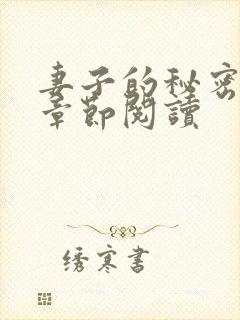 妻子的秘密
章節閱讀
绣寒書